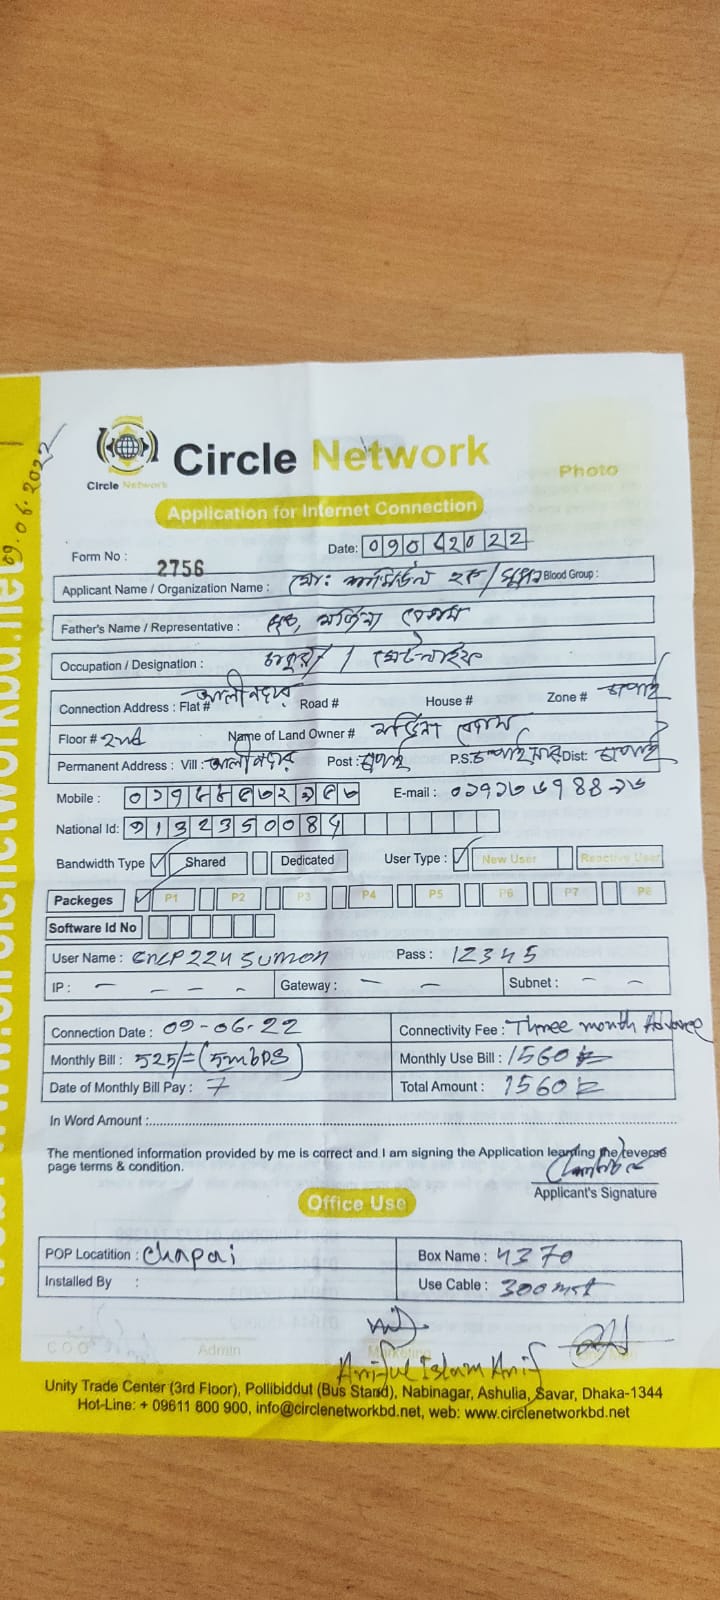 Circle Network
Circle Network
Photo
Application for Internet Connection
09.06.2022
Form No : 2756
Date: 09062022
Applicant Name / Organization Name : মো: শামিউল হক / সুমন Blood Group :
Father's Name / Representative :
Occupation / Designation :
Connection Address : Flat # আলীনগর Road # House # Zone # চাপাই
Floor # 2nd Name of Land Owner #
Permanent Address : Vill : আলীনগর Post : চাপাই P.S. Dist: চাপাই
Mobile : E-mail :
National Id: 9132350084
Bandwidth Type Shared Dedicated User Type : New User Reactive User
Packeges P1 P2 P3 P4 P5 P6 P7 P8
Software Id No
User Name : Pass : 12345
IP : – – – – Gateway : – – Subnet : – –
Connection Date : 09-06-22 Connectivity Fee : Three month Advance
Monthly Bill : 525/= (5mbps) Monthly Use Bill : 1560
Date of Monthly Bill Pay : 7 Total Amount : 1560
In Word Amount :
The mentioned information provided by me is correct and I am signing the Application learding the reverse
page terms & condition.
Applicant's Signature
Office Use
POP Locatition : Chapai Box Name : 4370
Installed By : Use Cable : 300 mtr
COO Admin Marketing
Ariful Islam Arif
Unity Trade Center (3rd Floor), Pollibiddut (Bus Stand), Nabinagar, Ashulia, Savar, Dhaka-1344
Hot-Line: + 09611 800 900, info@circlenetworkbd.net, web: www.circlenetworkbd.net